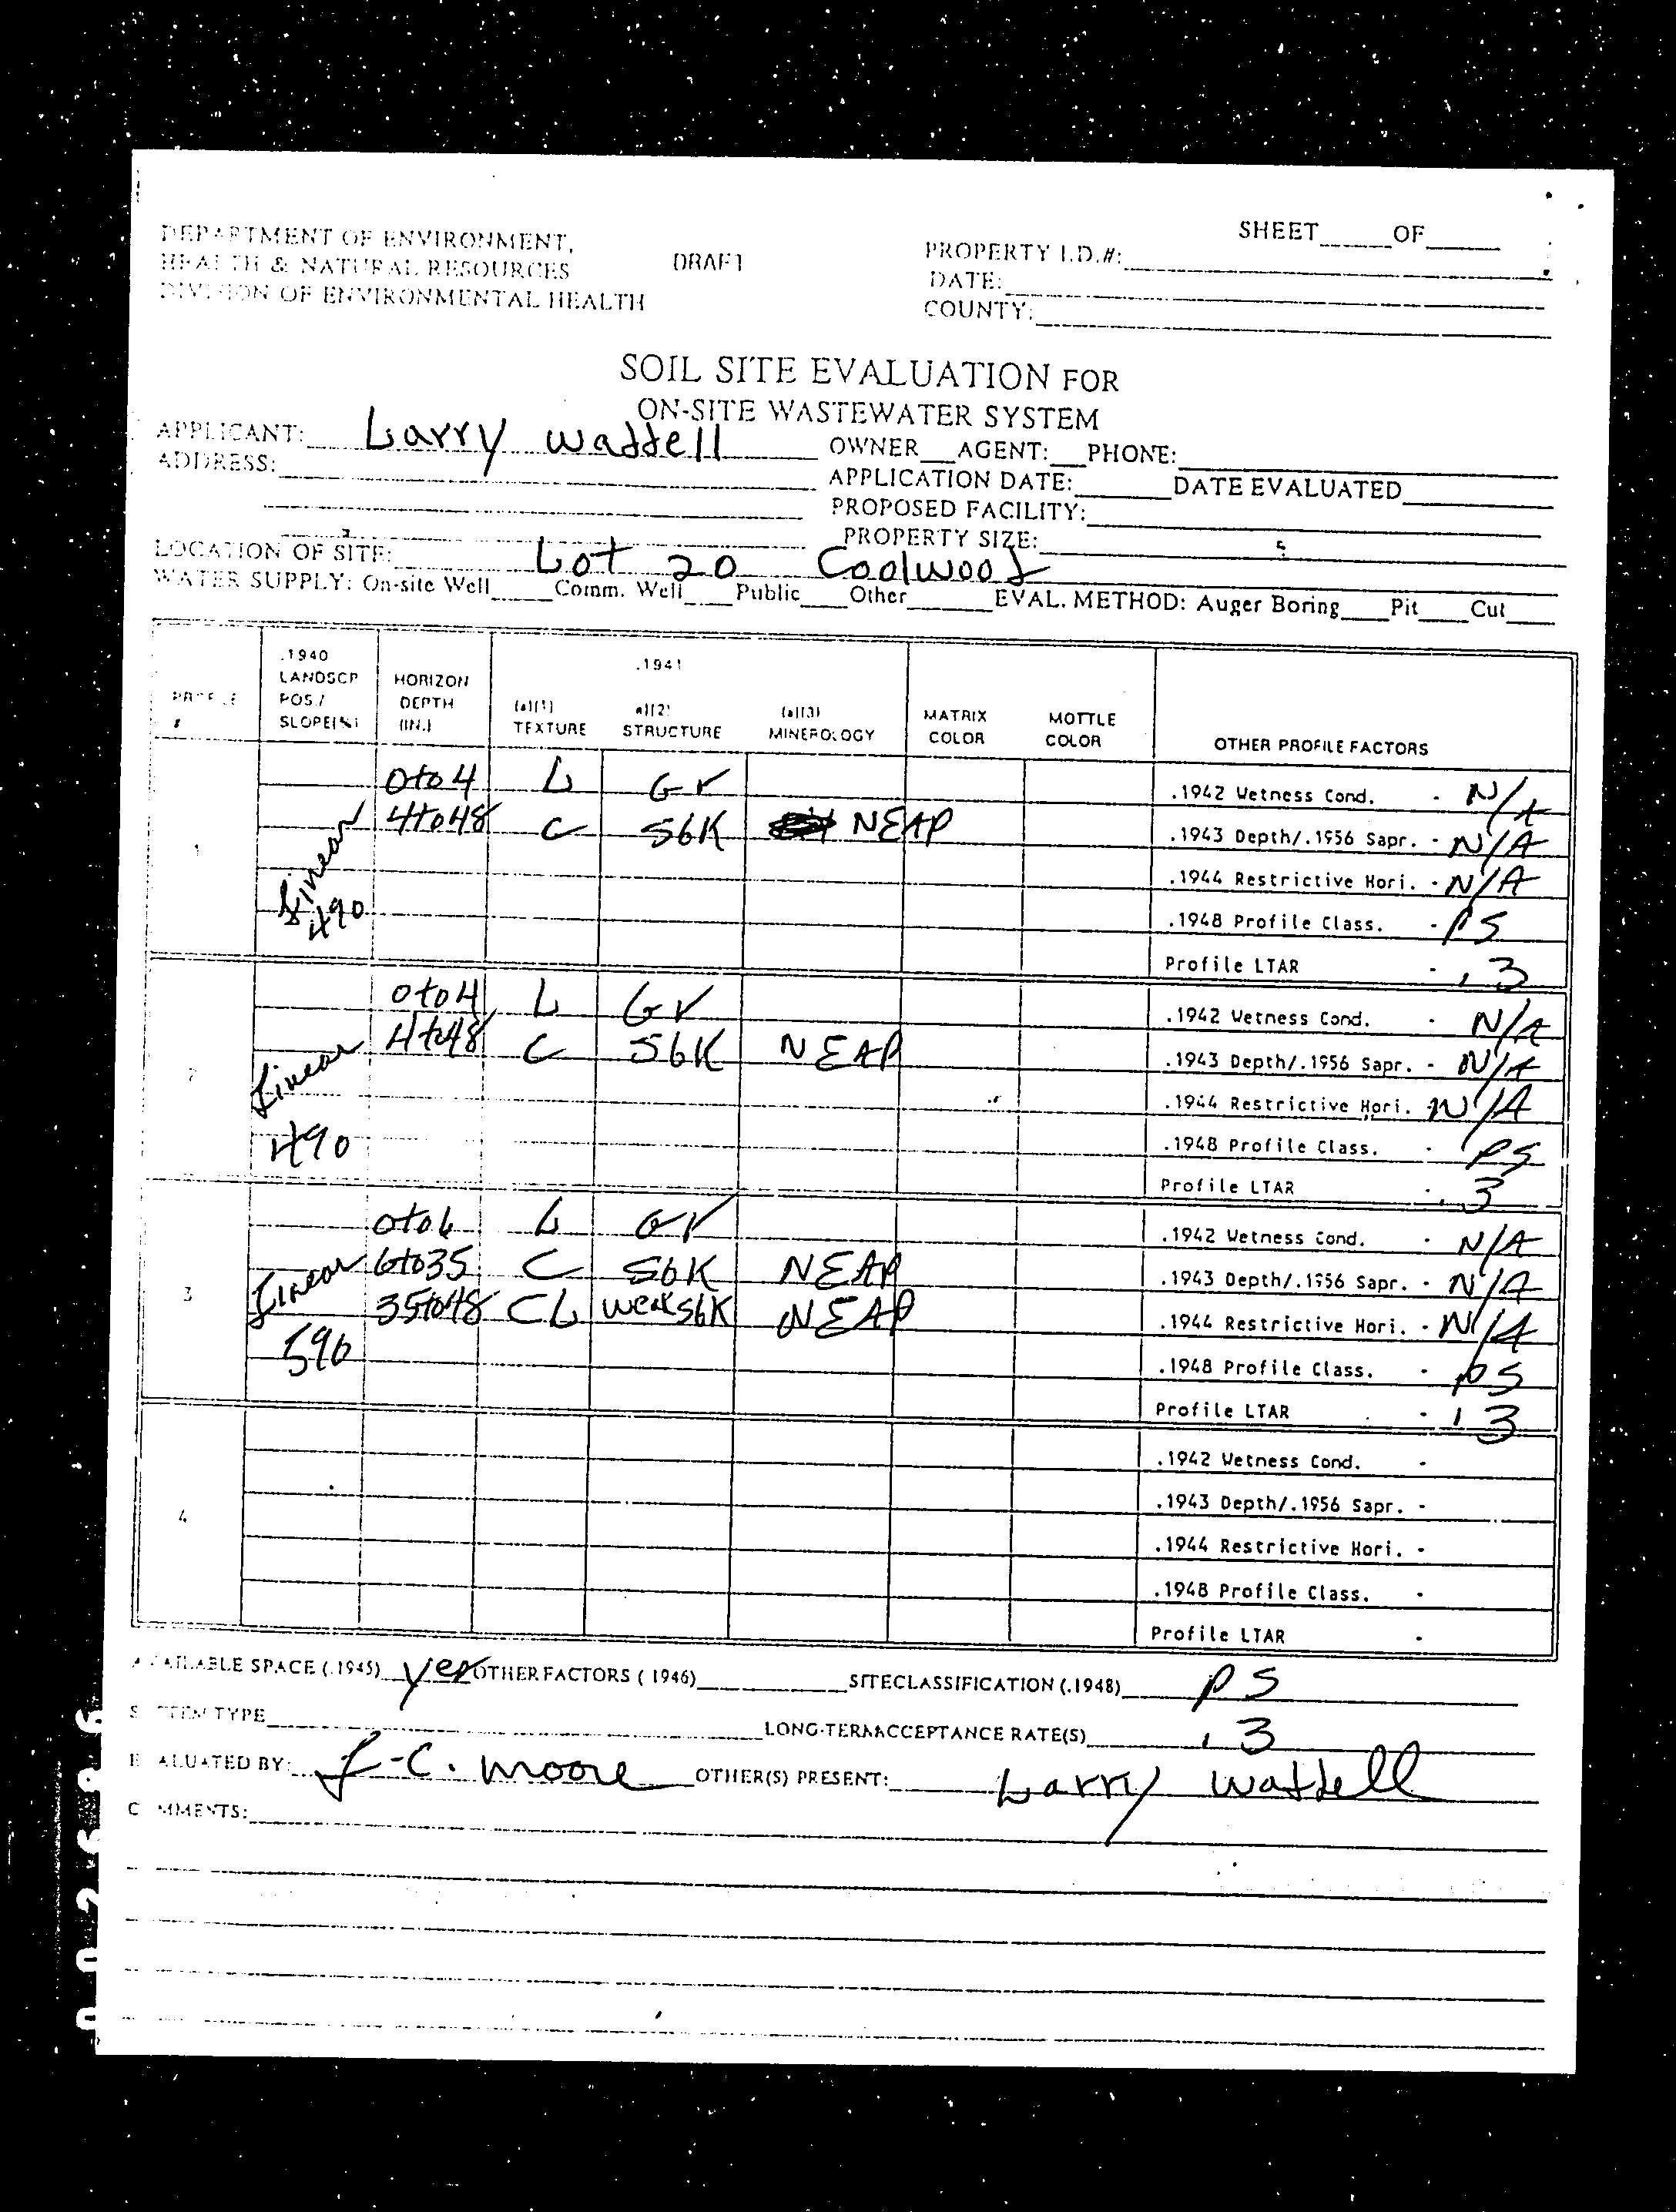 SHEET OF
DEPARTMENT OF ENVIRONMENT, DRAFT PROPERTY I.D.#:
HEALTH & NATURAL RESOURCES DATE:
DIVISION OF ENVIRONMENTAL HEALTH COUNTY:
SOIL SITE EVALUATION FOR
ON-SITE WASTEWATER SYSTEM
APPLICANT: Larry Waddell OWNER AGENT: PHONE:
ADDRESS: APPLICATION DATE: DATE EVALUATED
PROPOSED FACILITY:
PROPERTY SIZE:
LOCATION OF SITE: Lot 20 Coolwood
WATER SUPPLY: On-site Well Comm. Well Public Other EVAL. METHOD: Auger Boring Pit Cut
PROFILE # .1940 LANDSCP POS./ SLOPE(%) HORIZON DEPTH (IN.) .1941 (a)(1) TEXTURE a)(2) STRUCTURE (a)(3) MINEROLOGY MATRIX COLOR MOTTLE COLOR OTHER PROFILE FACTORS
1 Linear 4%
0to4 L Gr .1942 Wetness Cond. - N/A
4to48 C SbK NEAP .1943 Depth/.1956 Sapr. - N/A
.1944 Restrictive Hori. - N/A
.1948 Profile Class. - PS
Profile LTAR - .3
2 Linear 4%
0to4 L Gr .1942 Wetness Cond. - N/A
4to48 C SbK NEAP .1943 Depth/.1956 Sapr. - N/A
.1944 Restrictive Hori. N/A
.1948 Profile Class. - PS
Profile LTAR - .3
3 Linear 5%
0to6 L Gr .1942 Wetness Cond. - N/A
6to35 C SbK NEAP .1943 Depth/.1956 Sapr. - N/A
35to48 CL weak sbK NEAP .1944 Restrictive Hori. - N/A
.1948 Profile Class. - PS
Profile LTAR - .3
4 .1942 Wetness Cond. -
.1943 Depth/.1956 Sapr. -
.1944 Restrictive Hori. -
.1948 Profile Class. -
Profile LTAR -
AVAILABLE SPACE (.1945) yes OTHER FACTORS (.1946) SITECLASSIFICATION (.1948) PS
SYSTEM TYPE LONG-TERM ACCEPTANCE RATE(S) .3
EVALUATED BY: L-C. Moore OTHER(S) PRESENT: Larry Waddell
COMMENTS: